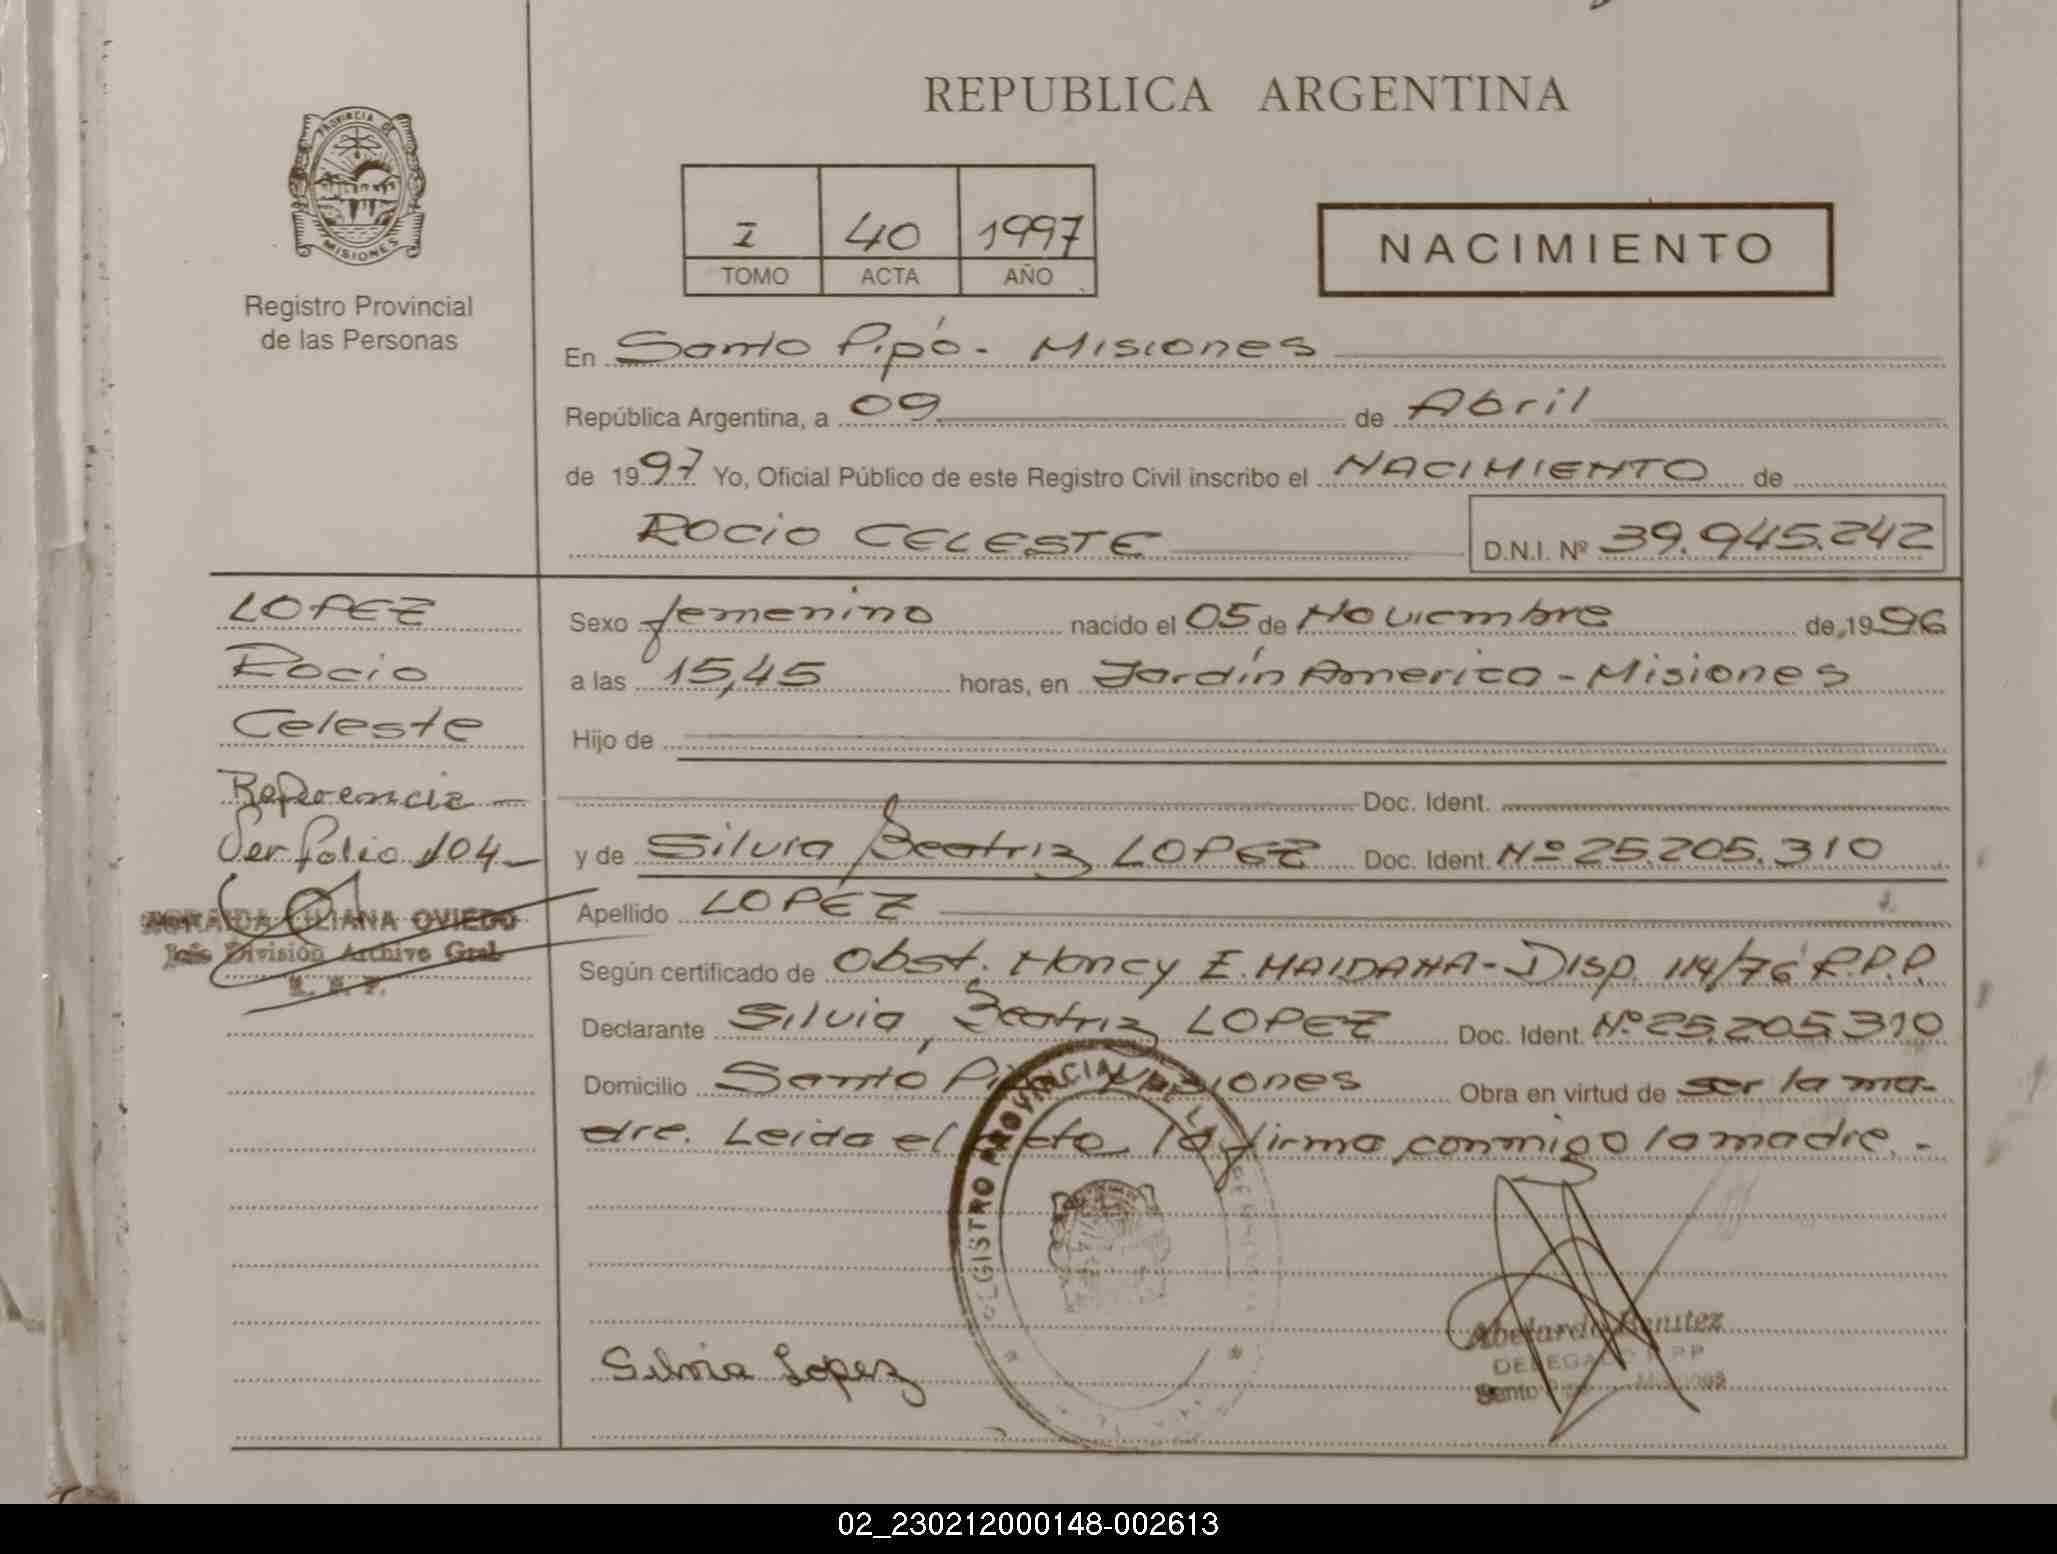 REPUBLICA ARGENTINA
PROVINCIA DE
MISIONES
Registro Provincial
de las Personas
I 40 1997
TOMO ACTA AÑO
NACIMIENTO
En Santo Pipó - Misiones
República Argentina, a 09 de Abril
de 1997 Yo, Oficial Público de este Registro Civil inscribo el NACIMIENTO de
ROCIO CELESTE D.N.I. Nº 39.945.242
LOPEZ
Rocio
Celeste
Referencia -
Ver folio 104 -
LILIANA OVIEDO
Jefe División Archivo Gral.
Sexo femenino nacido el 05 de Noviembre de 1996
a las 15,45 horas, en Jardín America - Misiones
Hijo de
Doc. Ident.
y de Silvia Beatriz LOPEZ Doc. Ident. Nº 25.205.310
Apellido LOPEZ
Según certificado de Obst. Nancy E. MAIDANA - Disp. 114/76 R.P.P.
Declarante Silvia Beatriz LOPEZ Doc. Ident. Nº 25.205.310
Domicilio Santo Pipó Misiones Obra en virtud de ser la ma-
dre. Leida el acta la firma conmigo la madre. -
REGISTRO PROVINCIAL DE LAS PERSONAS
Silvia Lopez
Abelardo Benitez
DELEGADO R.P.P.
Santo Pipó Misiones
02_230212000148-002613